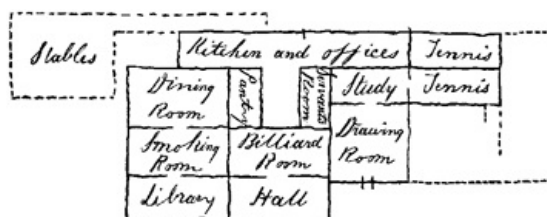 Stables
Kitchen and offices
Tennis
Dining
Room
Pantry
Servants
Room
Study
Tennis
Smoking
Room
Billiard
Room
Drawing
Room
Library
Hall